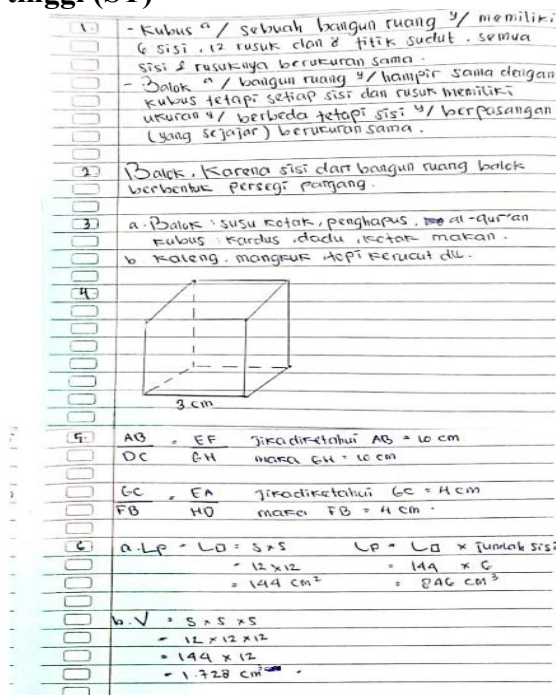 tinggi (ST)
1. - Kubus a/ sebuah bangun ruang y/ memiliki
6 sisi, 12 rusuk dan 8 titik sudut. semua
sisi & rusuknya berukuran sama.
- Balok a/ bangun ruang y/ hampir sama dengan
kubus tetapi setiap sisi dan rusuk memiliki
ukuran y/ berbeda tetapi sisi y/ berpasangan
(yang sejajar) berukuran sama.
2. Balok. Karena sisi dari bangun ruang balok
berbentuk persegi panjang.
3. a. Balok : susu kotak, penghapus, al-qur'an
kubus : kardus, dadu, kotak makan.
b. kaleng, mangkuk, topi kerucut dll.
4.
3 cm
5. AB = EF Jika diketahui AB = 10 cm
DC GH maka GH = 10 cm
GC = EA Jika diketahui GC = 4 cm
FB HD maka FB = 4 cm.
6 a. Lp = L□ = s×s Lp = L□ × Jumlah sisi
= 12×12 = 144 × 6
= 144 cm² = 846 cm³
b. V = s×s×s
= 12×12×12
= 144 × 12
= 1.728 cm³.